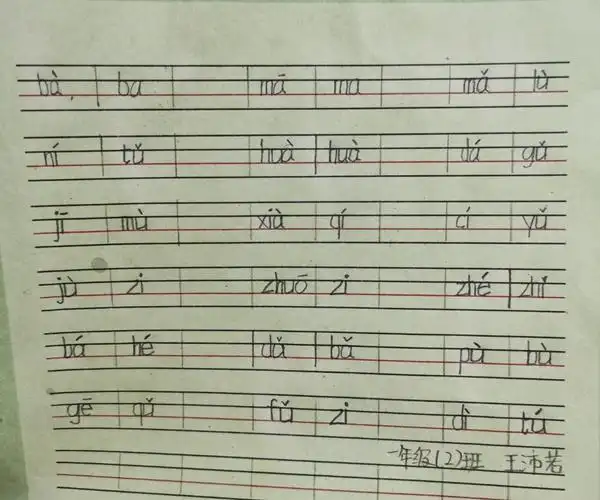 bà, ba mā ma mǎ lù
ní tǔ huà huà dá gǔ
jī mù xià qí cí yǔ
jù zi zhuō zi zhé zhǐ
bá hé dǎ bǎ pù bù
gē qǔ fǔ zi dì tú
一年级(2)班 王沛若